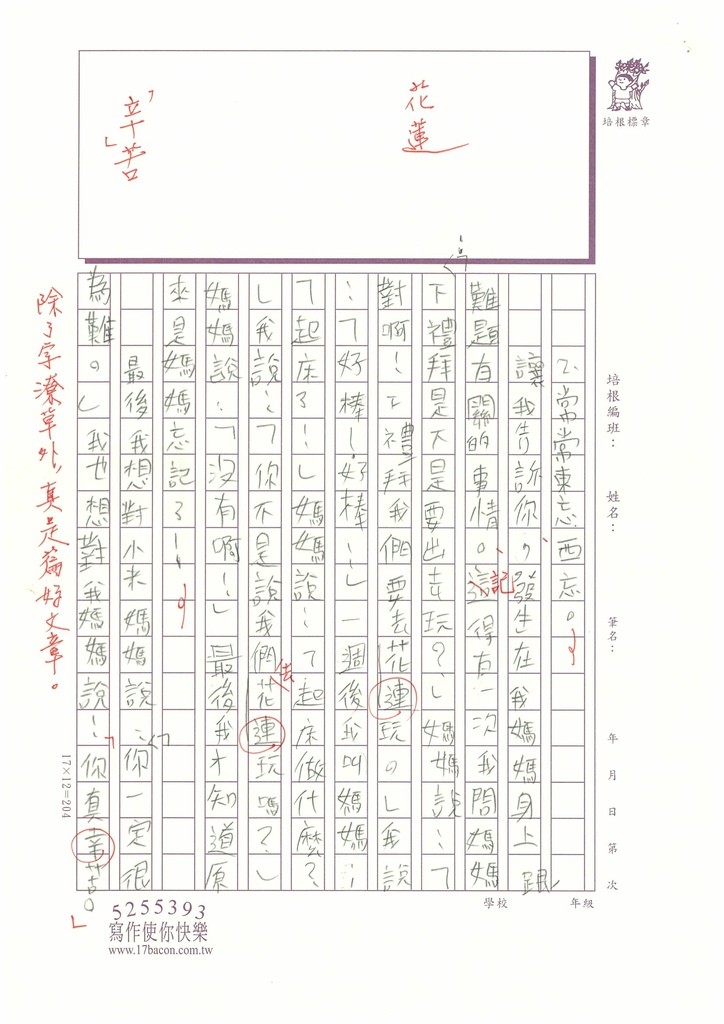 花蓮
「辛」苦
培根標章
培根編班：
姓名：
筆名：
年 月 日 第 次
學校
年級
忘常常東忘西忘。
讓我告訴你，發生在我媽媽身上跟
難題有關的事情。這記得有一次我問媽媽
：「下禮拜是不是要出去玩？」媽媽說：「
對啊！下禮拜我們要去花連玩。」我說
：「好棒！好棒！」一週後我叫媽媽：
「起床了！」媽媽說：「起床做什麼？
」我說：「你不是說我們去花連玩嗎？」
媽媽說：「沒有啊！」最後我才知道原
來是媽媽忘記了！
最後我想對小米媽媽說：「你一定很
為難。」我也想對我媽媽說：「你真幸苦。」
除了字潦草外，真是篇好文章。
17×12=204
5255393
寫作使你快樂
www.17bacon.com.tw